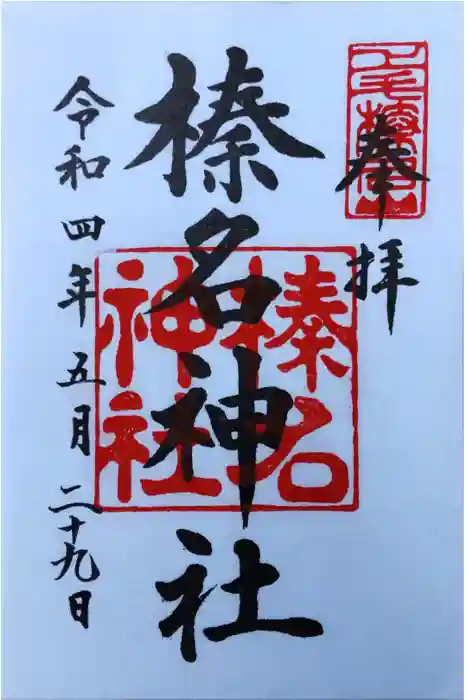 奉拝
上毛榛名山
榛名神社
榛名
神社
令和四年五月二十九日